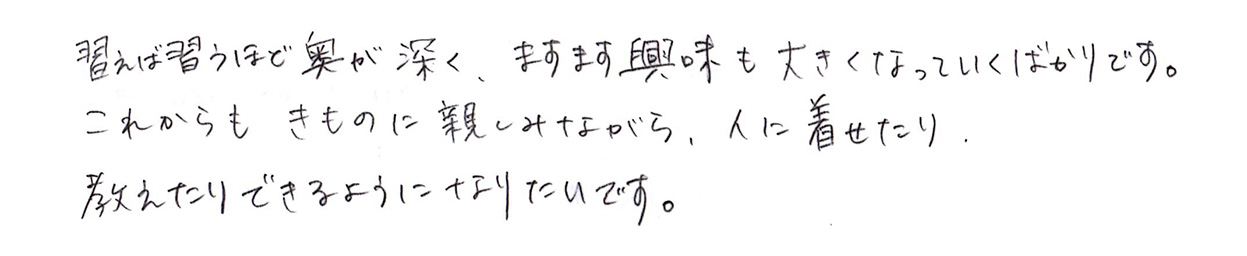 習えば習うほど奥が深く、ますます興味も大きくなっていくばかりです。
これからも きものに親しみながら、人に着せたり、
教えたりできるようになりたいです。